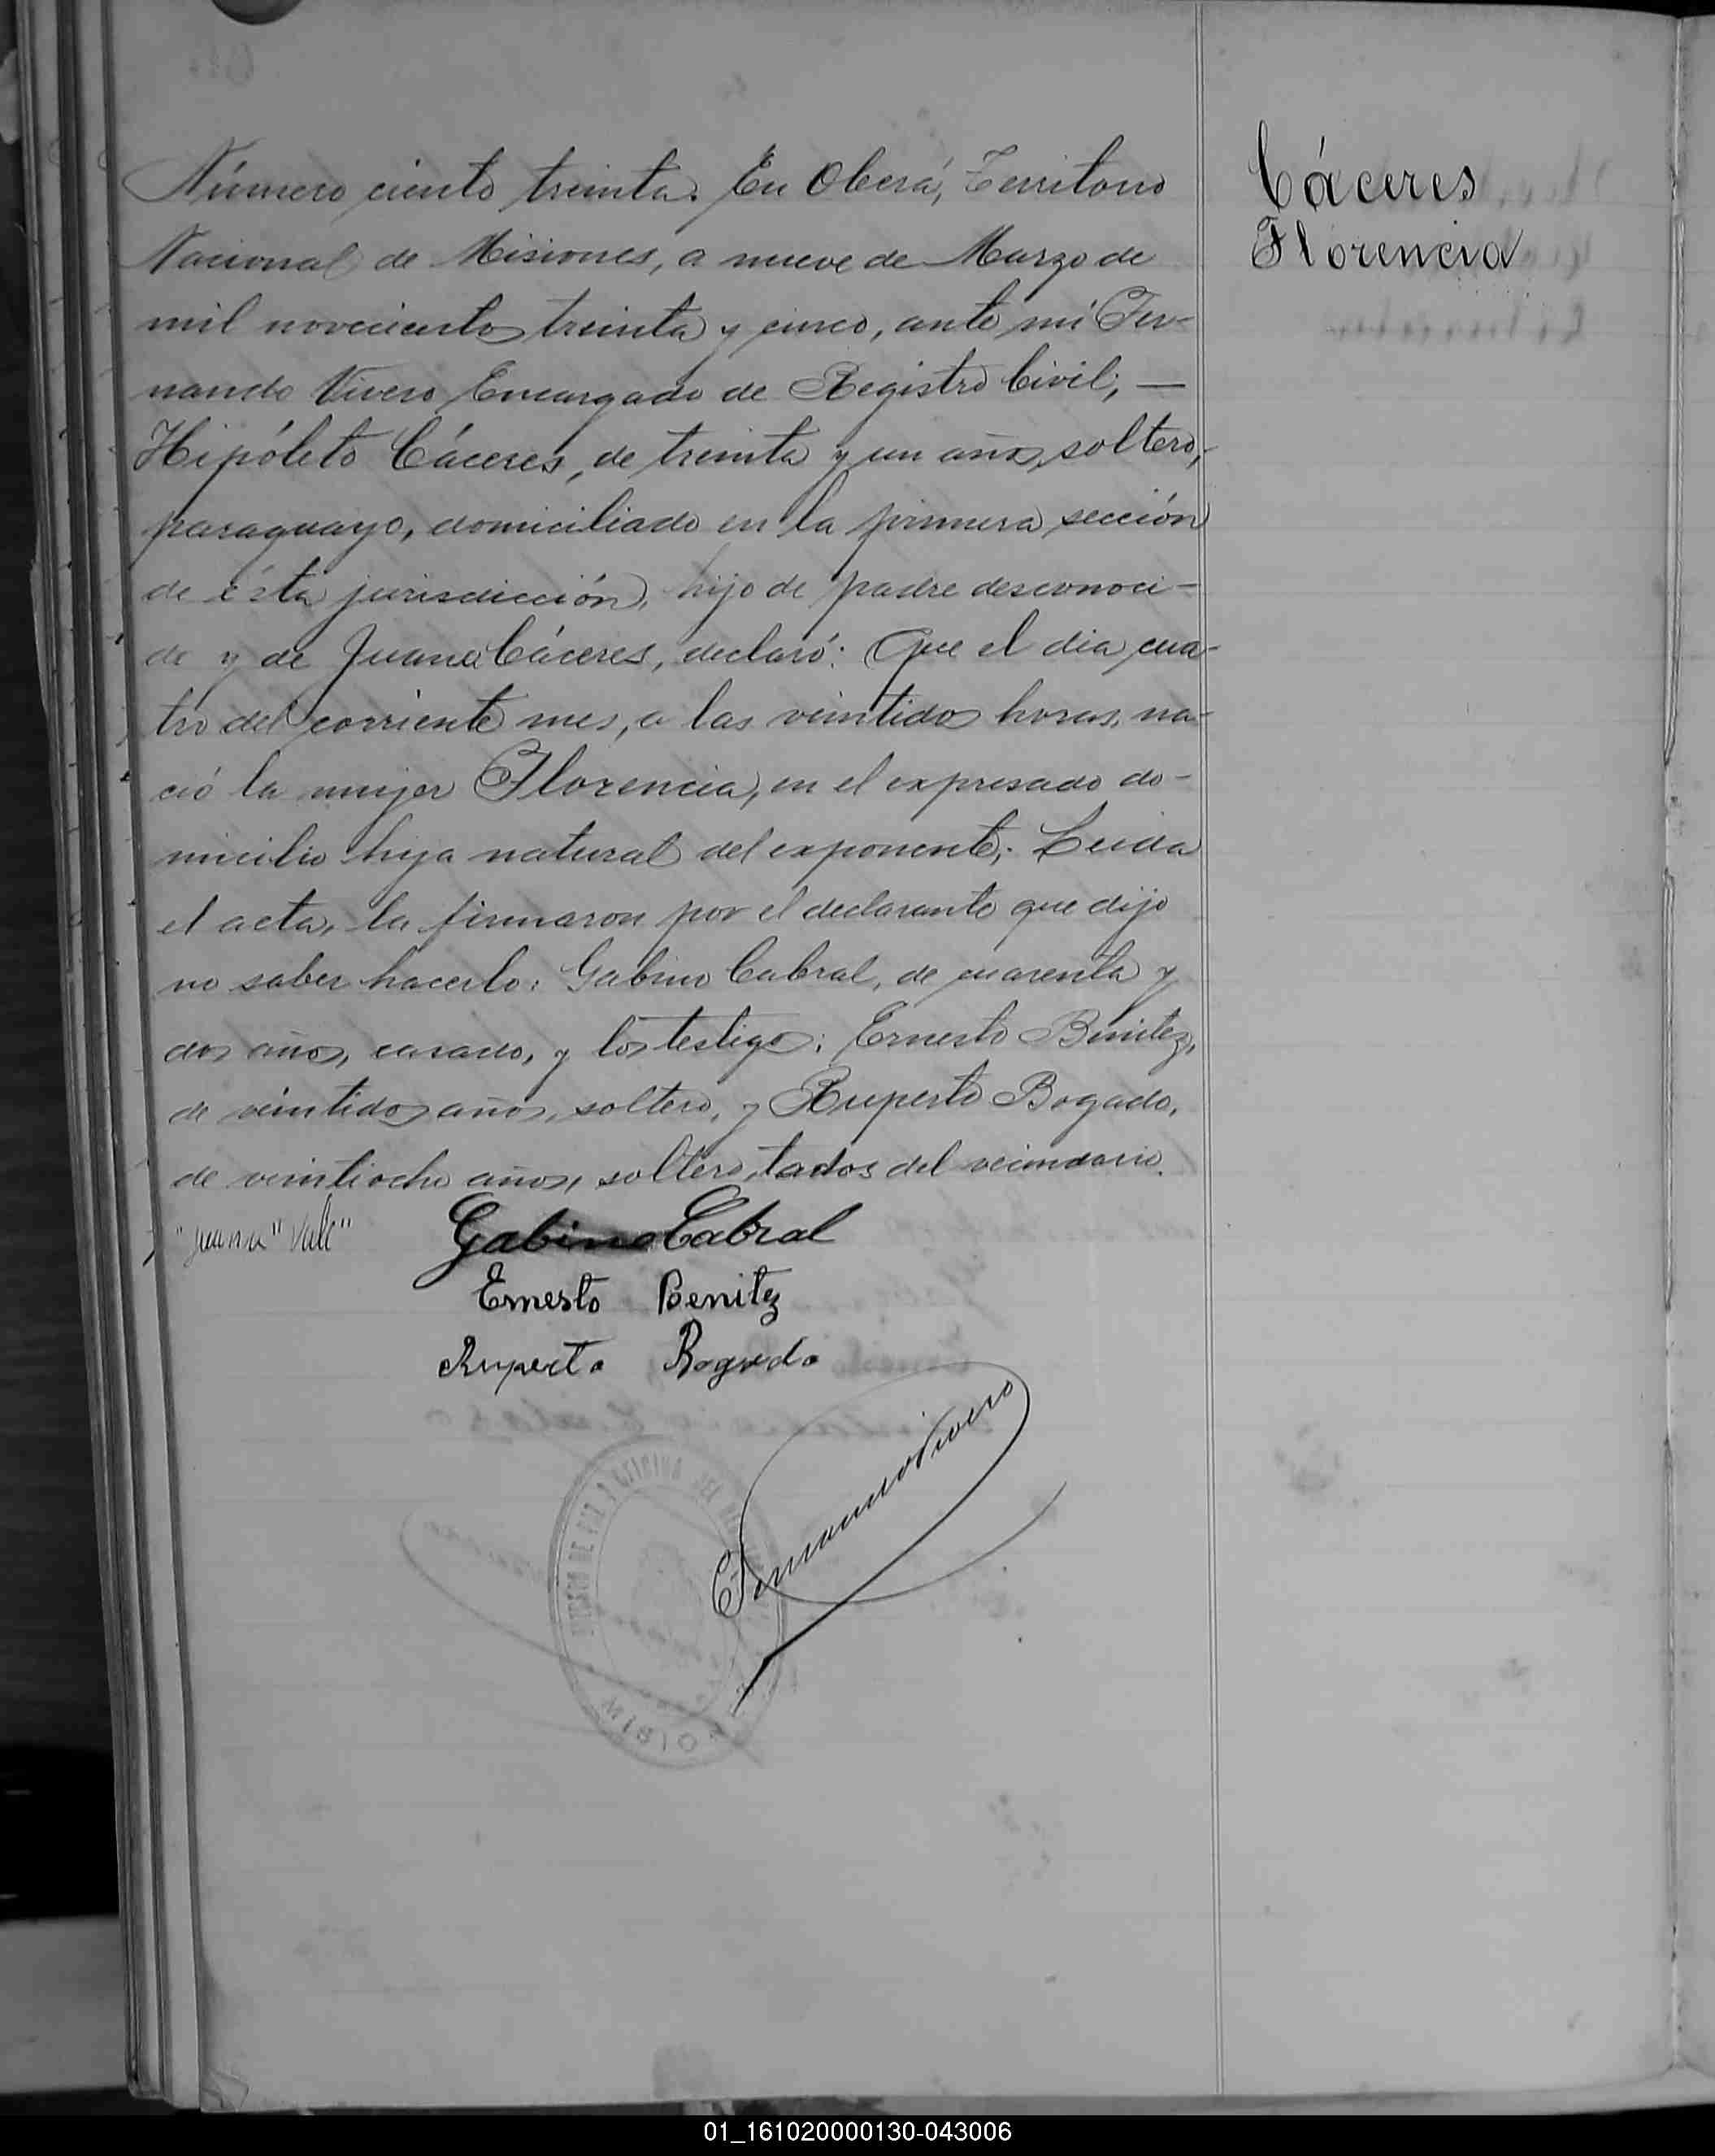 Número ciento treinta. En Oberá, Territorio
Nacional de Misiones, a nueve de Marzo de
mil novecientos treinta y cinco, ante mí Fer-
nando Vivero Encargado de Registro Civil; —
Hipóleto Cáceres, de treinta y un años, soltero,-
paraguayo, domiciliado en la primera sección
de ésta jurisdicción, hijo de padre desconoci-
do y de Juana Cáceres, declaró: Que el dia cua-
tro del corriente mes, a las veintidos horas, na-
ció la mujer Florencia, en el expresado do-
micilio hija natural del exponente; Leida
el acta, la firmaron por el declarante que dijo
no saber hacerlo: Gabino Cabral, de cuarenta y
dos años, casado, y los testigos: Ernesto Benitez,
de veintidos años, soltero, y Ruperto Bogado,
de veintiocho años, soltero, todos del vecindario.
"Juana" Vale"
Gabino Cabral
Ernesto Benitez
Ruperto Bogado
Fernando Vivero
MISIONES
Cáceres
Florencia
01_161020000130-043006